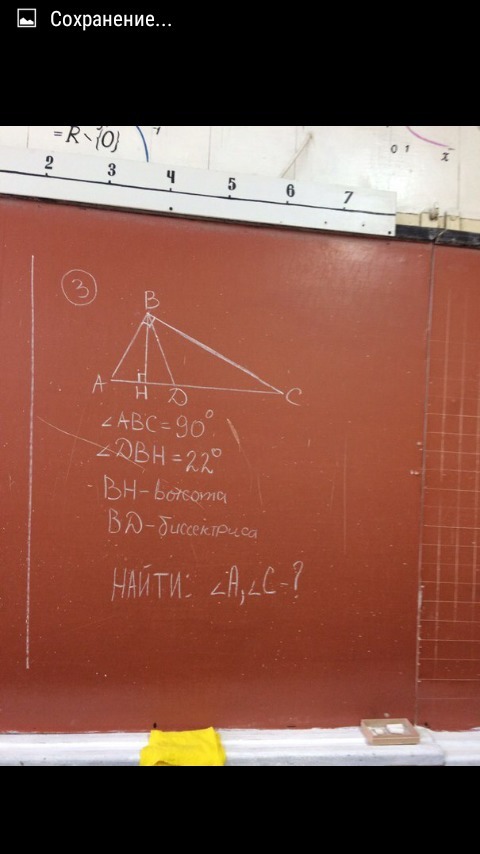 Сохранение...
= R \ {0}
0 1
2 3 4 5 6 7
3
B
A H D C
∠ABC = 90°
∠DBH = 22°
BH - высота
BD - биссектриса
НАЙТИ: ∠A, ∠C - ?